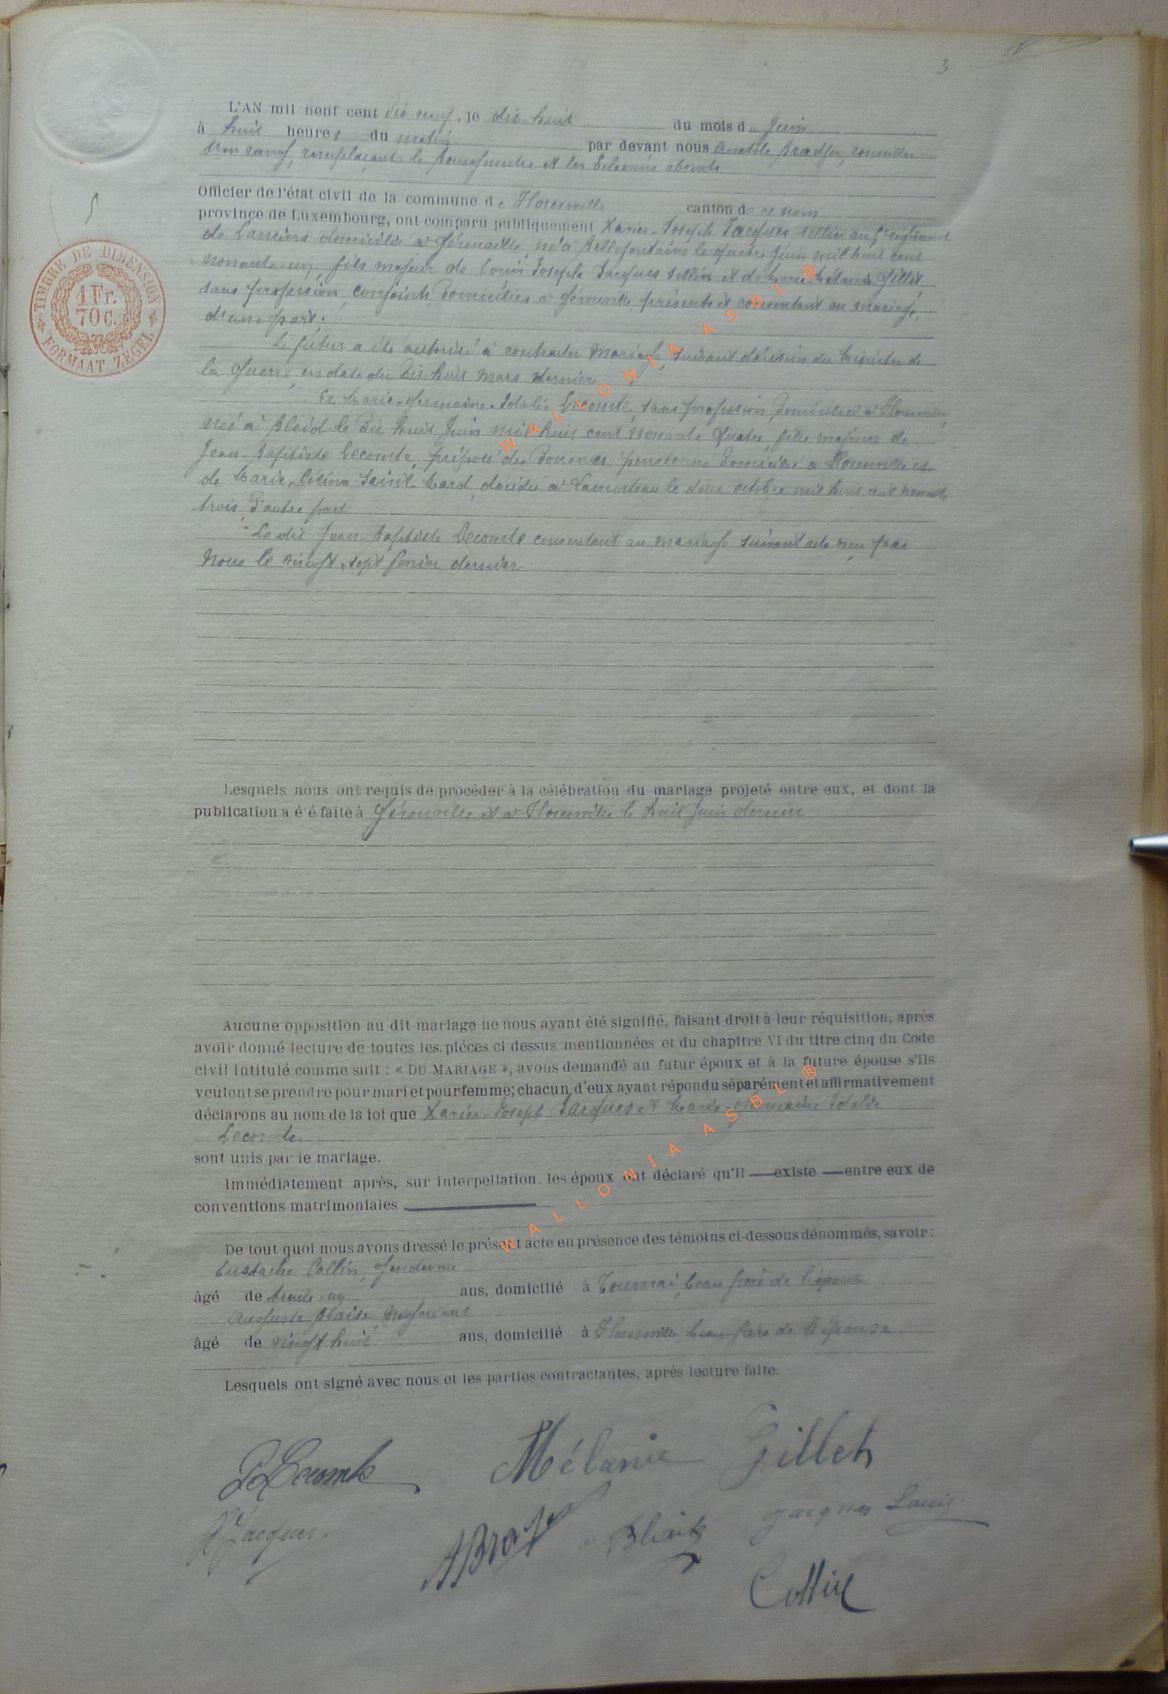 3
L'AN mil neuf cent dix-neuf, le dix-huit du mois de Juin
à huit heures du matin par devant nous Anatole Bradfer, conseiller
remplaçant le Bourgmestre et les Echevins absents
5
Officier de l'état civil de la commune de Florenville canton de ce nom
province de Luxembourg, ont comparu publiquement Xavier-Joseph Jacques sellier au régiment
de Lanciers domicilié à Gérouville, né à Bellefontaine le quatre Juin mil huit cent
nonante-un, fils majeur de Louis Joseph Jacques sellier et de Marie Mélanie Gillet
sans profession, conjoints, domiciliés à Gérouville, présents et consentant au mariage,
d'une part.
Le futur a été autorisé à contracter mariage, suivant décision du Ministre de
la Guerre, en date du dix-huit mars dernier
Et Marie-Germaine-Idalie Lecomte, sans profession, domiciliée à Florenville,
née à Bleid le dix huit Juin mil huit cent nonante quatre, fille majeure de
Jean-Baptiste Lecomte, préposé des Douanes pensionné domicilié à Florenville et
de Marie-Célina Saint-Mard, décédée à Lamorteau le deux octobre mil huit cent nonante
trois, d'autre part
Le dit Jean-Baptiste Lecomte consentant au mariage suivant acte reçu par
Nous le vingt-sept février dernier
TIMBRE DE DIMENSION
1 Fr.
70 C.
FORMAAT ZEGEL
Lesquels nous ont requis de procéder à la célébration du mariage projeté entre eux, et dont la
publication a é é faite à Gérouville et à Florenville le huit Juin dernier
Aucune opposition au dit mariage ne nous ayant été signifié, faisant droit à leur réquisition, après
avoir donné lecture de toutes les pièces ci dessus mentionnées et du chapitre VI du titre cinq du Code
civil intitulé comme suit : « DU MARIAGE », avons demandé au futur époux et à la future épouse s'ils
veulent se prendre pour mari et pour femme; chacun d'eux ayant répondu séparément et affirmativement
déclarons au nom de la loi que Xavier-Joseph Jacques et Marie-Germaine Idalie
Lecomte
sont unis par le mariage.
Immédiatement après, sur interpellation, les époux ont déclaré qu'il — existe — entre eux de
conventions matrimoniales
De tout quoi nous avons dressé le présent acte en présence des témoins ci-dessous dénommés, savoir :
Eustache Collin, gendarme
âgé de trente-un ans, domicilié à Tournai, beau frère de l'époux
Auguste Blaise, négociant
âgé de vingt huit ans, domicilié à Florenville beau frère de l'épouse
Lesquels ont signé avec nous et les parties contractantes, après lecture faite.
Lecomte
Mélanie Gillet
Jacques
ABradfer
Jacques Louis
Collin
WALLONIA ASBL ®
WALLONIA ASBL ®